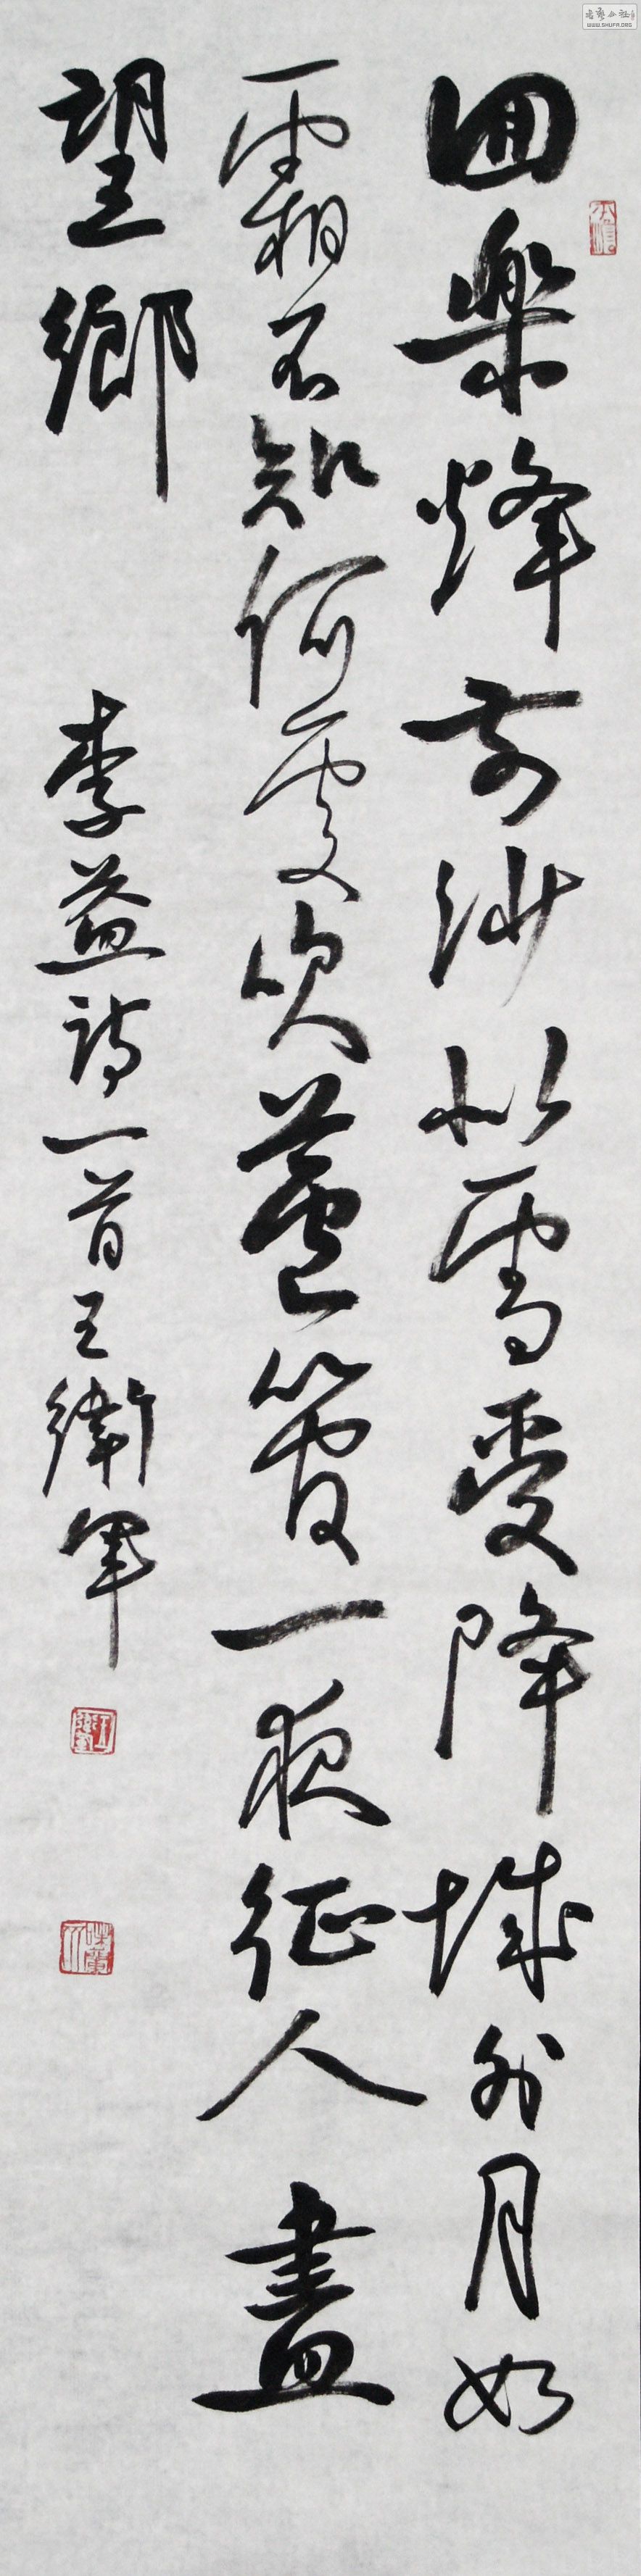 回樂烽前沙似雪受降城外月如
霜不知何處吹蘆管一夜征人盡
望鄉
李益詩一首王衛軍
WWW.SHUFA.ORG